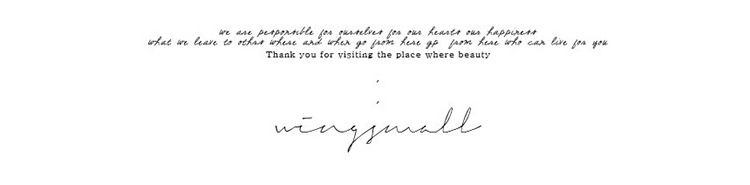 we are personsible for ourselves for our hearts our happiness
what we leave to othrs where and when go from here gp from here who can live for you
Thank you for visiting the place where beauty
.
.
wingsmall